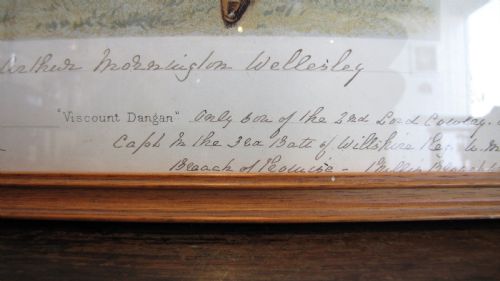 Arthur Mornington Wellesley
"Viscount Dangan" Only Son of the 2nd Lord Cowley.
Capt. in the 3rd Batt. of Wiltshire Reg.
Breach of Promise -